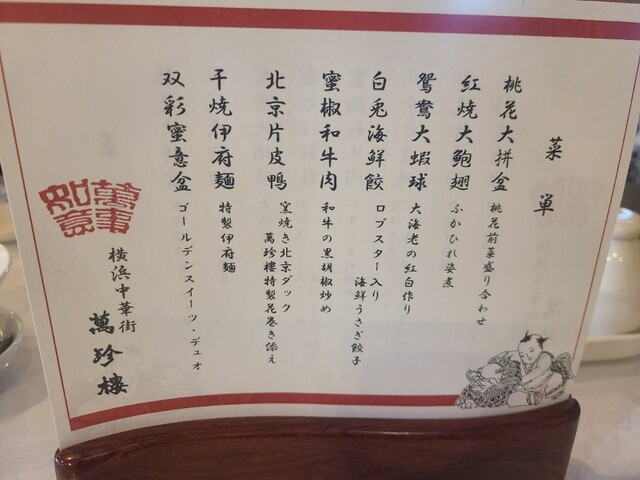 菜単
桃花大拼盆
桃花前菜盛り合わせ
紅焼大鮑翅
ふかひれ姿煮
鴛鴦大蝦球
大海老の紅白作り
白兎海鮮餃
ロブスター入り
海鮮うさぎ餃子
蜜椒和牛肉
和牛の黒胡椒炒め
北京片皮鴨
窯焼き北京ダック
萬珍樓特製花巻き添え
干焼伊府麺
特製伊府麺
双彩蜜意盆
ゴールデンスイーツ・デュオ
萬事
如意
横浜中華街
萬珍樓